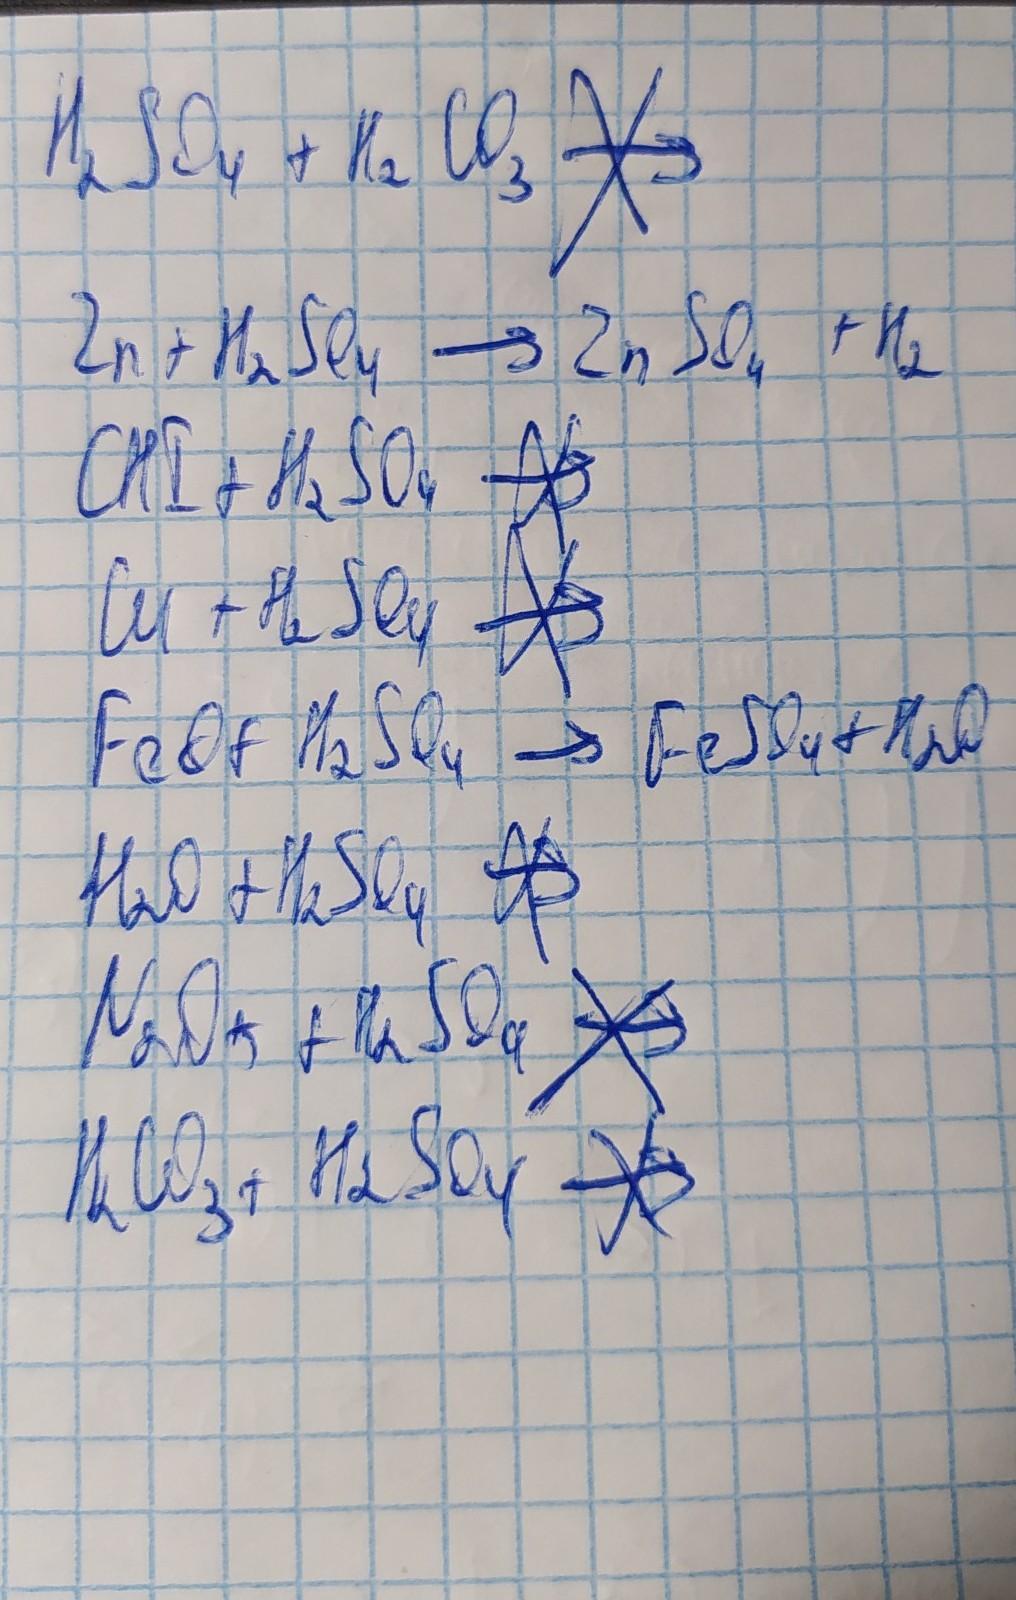 H₂SO₄ + H₂CO₃ ↛
Zn + H₂SO₄ → ZnSO₄ + H₂
CHI + H₂SO₄ ↛
Cu + H₂SO₄ ↛
FeO + H₂SO₄ → FeSO₄ + H₂O
H₂O + H₂SO₄ ↛
N₂O₅ + H₂SO₄ ↛
H₂CO₃ + H₂SO₄ ↛